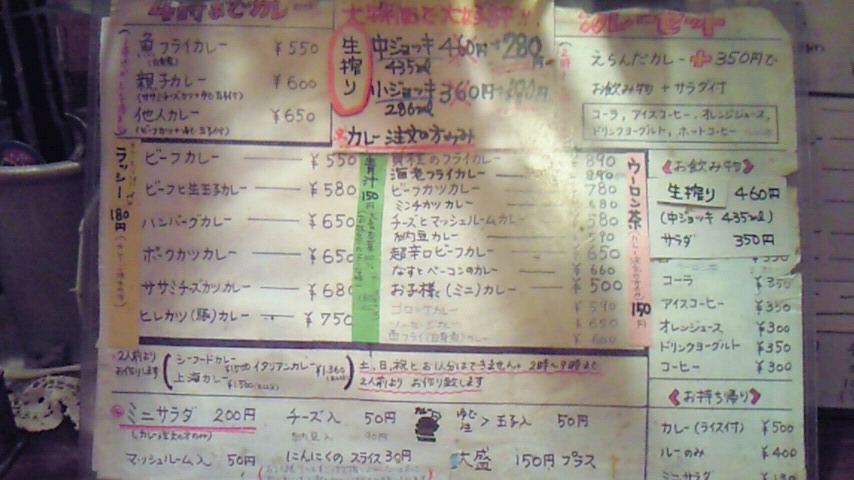 魚フライカレー ¥550
(白身魚)
親子カレー ¥600
他人カレー ¥650
生搾り
中ジョッキ 460円→280円
435ml
小ジョッキ 360円
カレー注文の方のみ
カレーセット
えらんだカレー+350円で
お飲み物+サラダ付
コーラ、アイスコーヒー、オレンジジュース、
ドリンクヨーグルト、ホットコーヒー
ラッシー 180円
ビーフカレー ¥550
ビーフと生玉子カレー ¥580
ハンバーグカレー ¥650
ポークカツカレー ¥650
ササミチーズカツカレー ¥680
ヒレカツ(豚)カレー ¥750
青汁 150円
貝柱のフライカレー ¥890
海老フライカレー 890
ビーフカツカレー 780
ミンチカツカレー 680
チーズとマッシュルームカレー 580
納豆カレー 590
超辛口ビーフカレー 650
なすとベーコンのカレー ¥660
お子様(ミニ)カレー ¥500
コロッケカレー ¥590
ソーセージカレー ¥650
魚フライ(白身魚)カレー ¥600
ウーロン茶 150円
《お飲み物》
生搾り 460円
(中ジョッキ 435ml)
サラダ 350円
コーラ ¥350
アイスコーヒー ¥350
オレンジジュース ¥300
ドリンクヨーグルト ¥350
コーヒー ¥300
《お持ち帰り》
カレー(ライス付) ¥500
ルーのみ ¥400
ミニサラダ
2人前より
お作りします
シーフードカレー ¥1500
イタリアンカレー ¥1,360
上海カレー ¥1500
土、日、祝とお1人分はできません。2時〜9時まで
2人前より お作り致します
ミニサラダ 200円
(カレー注文の方のみ)
チーズ入 50円
玉子入 50円
マッシュルーム入 50円
にんにくのスライス 30円
大盛 150円プラス